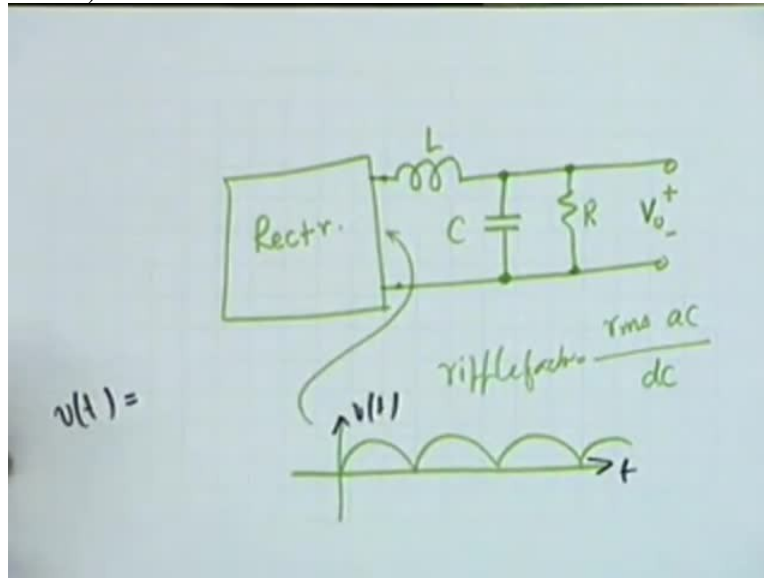 L
Rectr.
C
R
V₀
+
-
ripple factor = rms ac / dc
v(t) =
v(t)
t